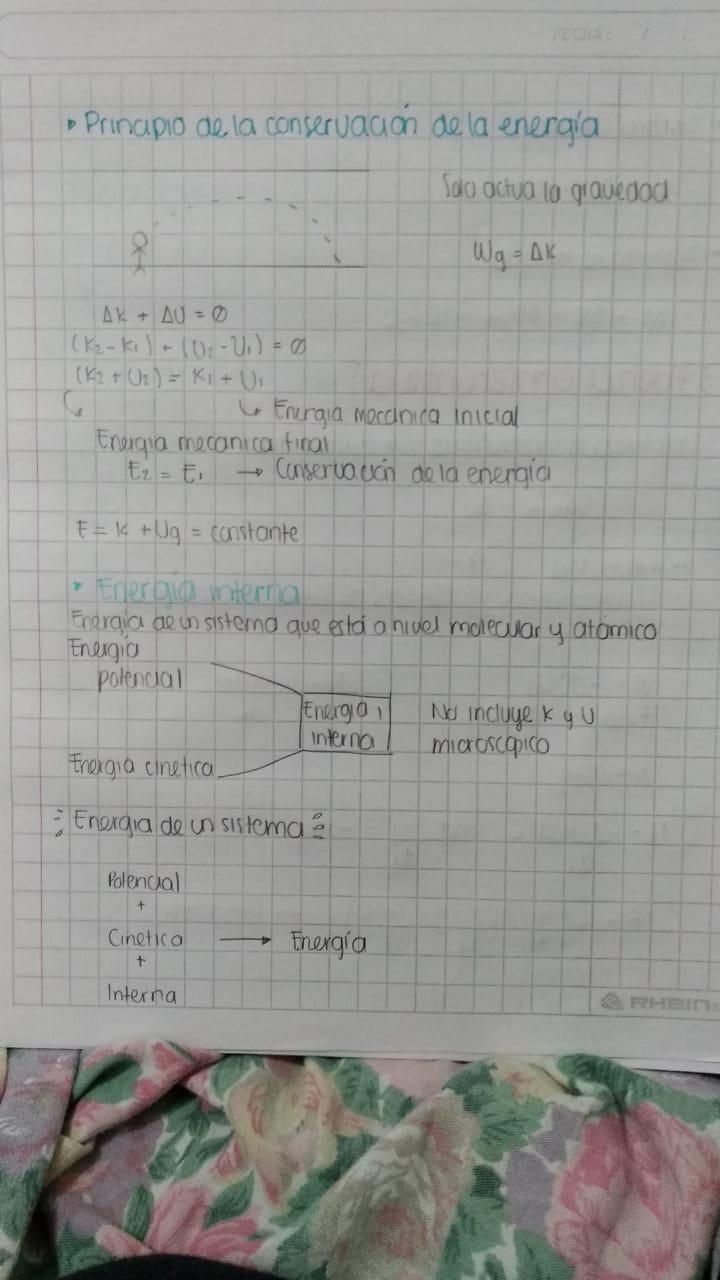 FECHA: / /
• Principio de la conservación de la energía
Solo actua la gravedad
Wg = ΔK
ΔK + ΔU = 0
(K2 - K1) + (U2 - U1) = 0
(K2 + U2) = K1 + U1
↳ Energia mecánica inicial
Energia mecanica final
E2 = E1 → Conservación de la energía
E = K + Ug = constante
• Energia interna
Energia de un sistema que está a nivel molecular y atómico
Energia
potencial
Energia
interna
No incluye K y U
microscópico
Energia cinetica
Energia de un sistema
Potencial
+
Cinetica → Energía
+
Interna
RHEIN